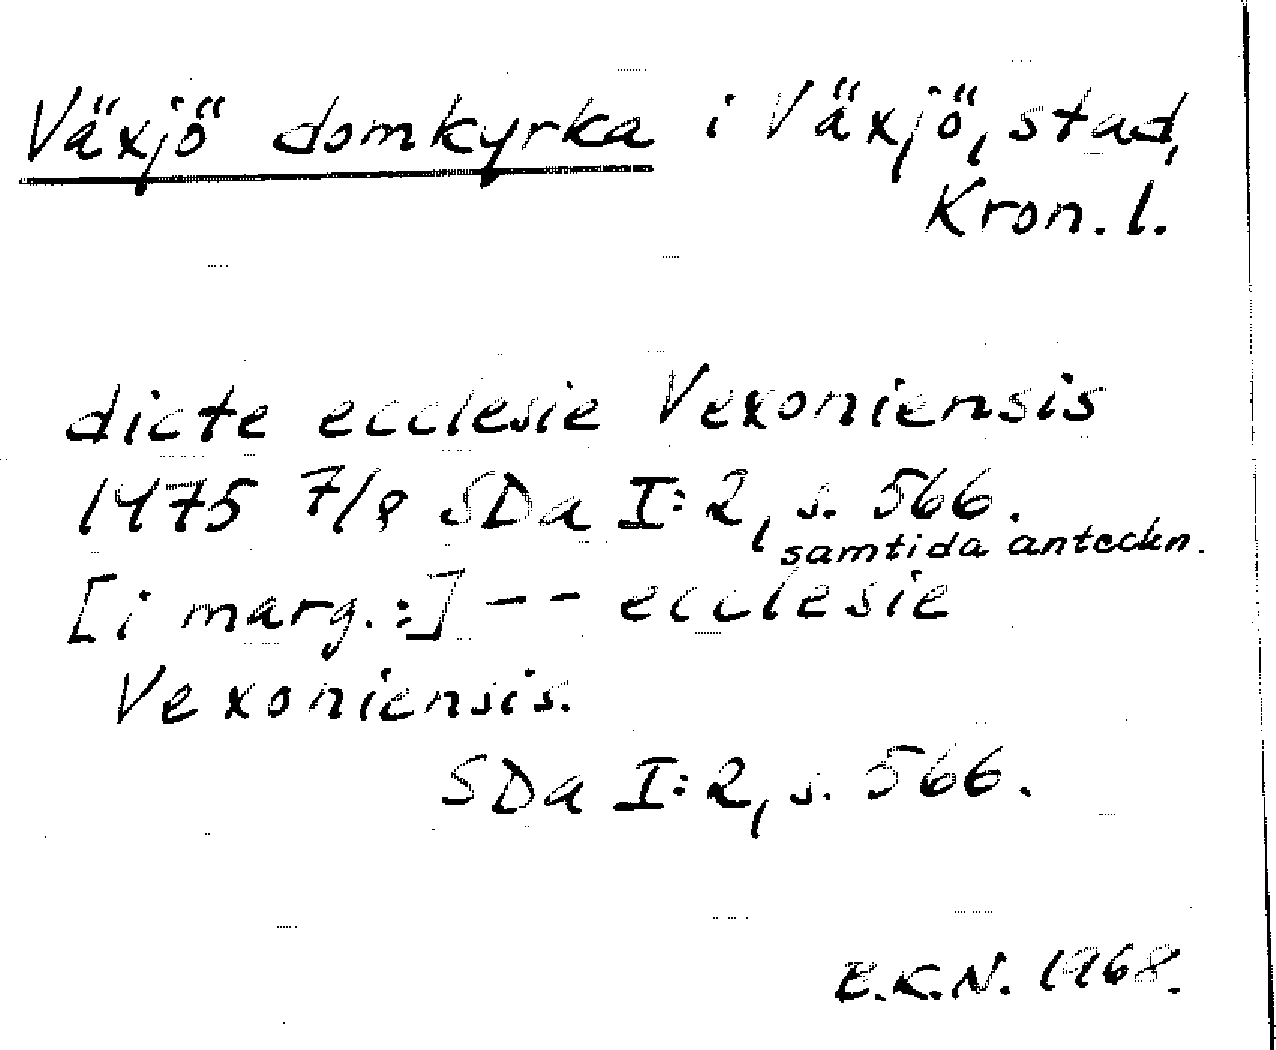 Växjö domkyrka i Växjö, stad,
Kron. l.
dicte ecclesie Vexoniensis
1475 7/8 SDa I:2, s. 566.
samtida anteckn.
[i marg.:] -- ecclesie
Vexoniensis.
SDa I:2, s. 566.
E.K.N. 1968.